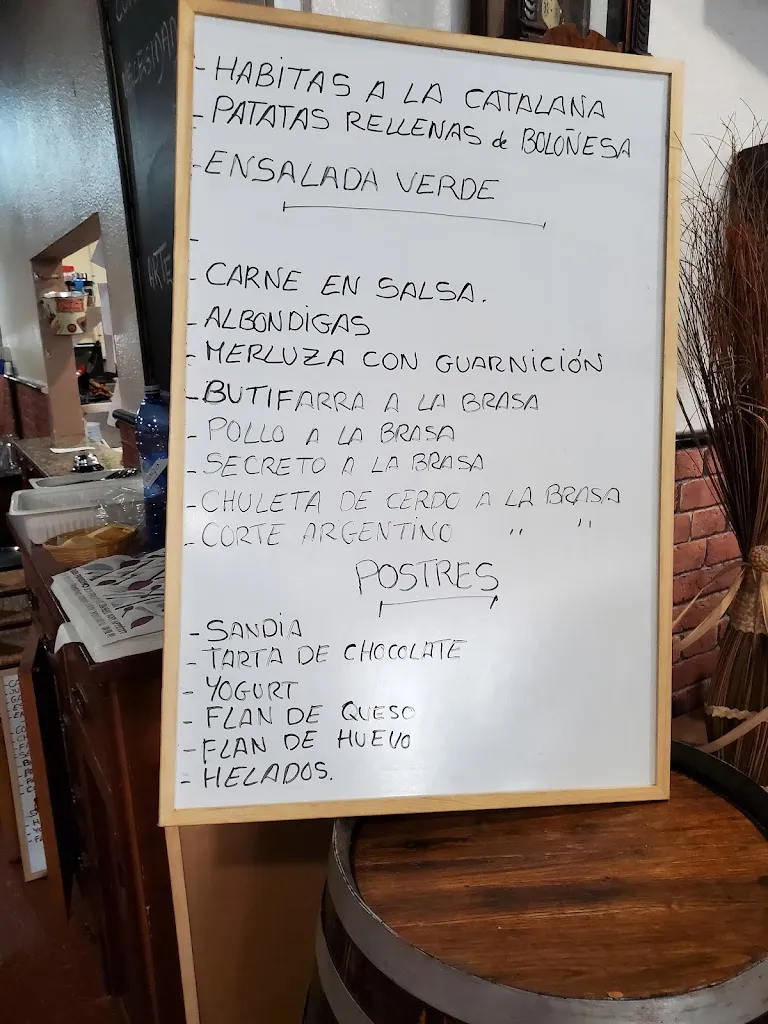 - HABITAS A LA CATALAÑA
- PATATAS RELLENAS de BOLOÑESA
- ENSALADA VERDE
-
- CARNE EN SALSA.
- ALBONDIGAS
- MERLUZA CON GUARNICIÓN
- BUTIFARRA A LA BRASA
- POLLO A LA BRASA
- SECRETO A LA BRASA
- CHULETA DE CERDO A LA BRASA
- CORTE ARGENTINO " "
POSTRES
- SANDIA
- TARTA DE CHOCOLATE
- YOGURT
- FLAN DE QUESO
- FLAN DE HUEVO
- HELADOS.
ARTE